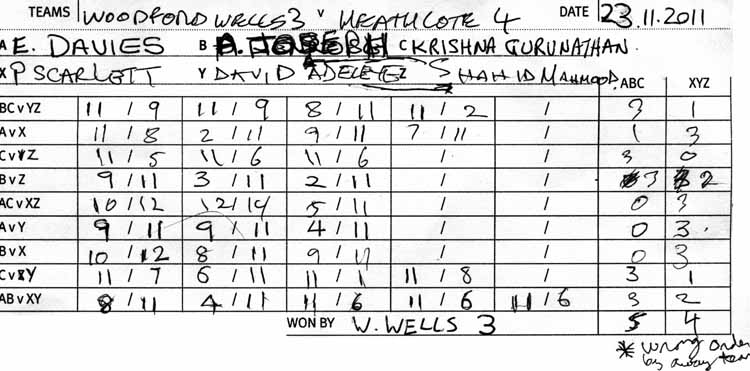 TEAMS WOODFORD WELLS 3 V HEATHCOTE 4 DATE 23.11.2011
A E. DAVIES B JOSEPH C KRISHNA GURUNATHAN
X P SCARLETT Y DAVID ADELEYE Z SHAHID MAHMOOD ABC XYZ
BC v YZ 11 / 9 11 / 9 8 / 11 11 / 2 / 3 1
A v X 11 / 8 2 / 11 9 / 11 7 / 11 / 1 3
C v Z 11 / 5 11 / 6 11 / 6 / / 3 0
B v Z 9 / 11 3 / 11 2 / 11 / / 3 2
AC v XZ 10 / 12 12 / 14 5 / 11 / / 0 3
A v Y 9 / 11 9 / 11 4 / 11 / / 0 3.
B v X 10 / 12 8 / 11 9 / 11 / / 0 3
C v Y 11 / 7 6 / 11 11 / 1 11 / 8 / 3 1
AB v XY 8 / 11 4 / 11 11 / 6 11 / 6 11 / 6 3 2
WON BY W. WELLS 3 5 4
* wrong order
by away team